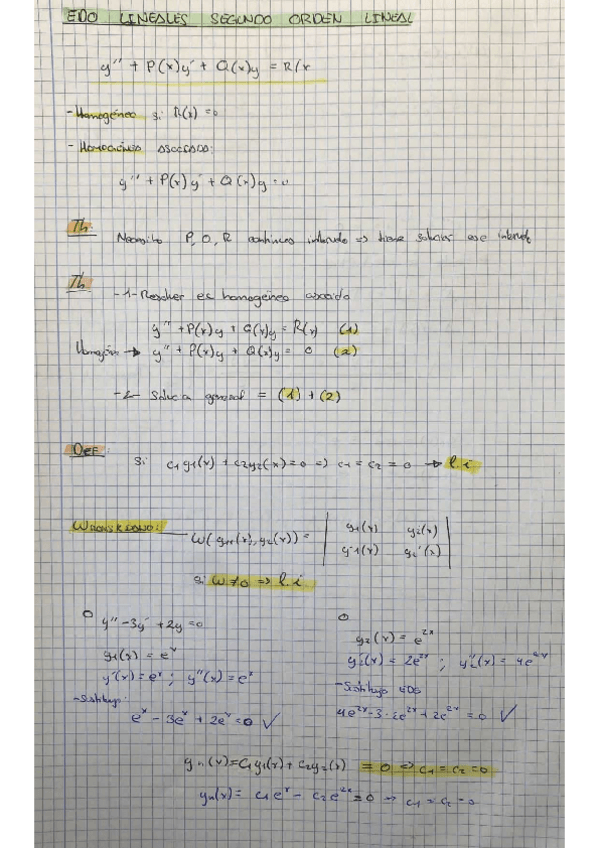 EDO LINEALES SEGUNDO ORDEN LINEAL
y'' + P(x)y' + Q(x)y = R(x
- Homogénea si R(x) = 0
- Homogénea asociada:
y'' + P(x)y' + Q(x)y = 0
Th:
Necesito P, Q, R continuos intervalo => tiene solución ese intervalo
Th
-1- Resolver ec homogénea asociada
y'' + P(x)y + Q(x)y = R(x) (1)
Homogénea → y'' + P(x)y + Q(x)y = 0 (2)
-2- general = (1) + (2)
DEF:
Si c1y1(x) + c2y2(x) = 0 => c1 = c2 = 0 → l.i
WRONSKIANO:
W(y1(x), y2(x)) = | y1(x) y2(x) |
| y'1(x) y2'(x) |
si W ≠ 0 => l.i.
y'' - 3y' + 2y = 0
y1(x) = e^x
y'(x) = e^x ; y''(x) = e^x
- Sustituyo:
e^x - 3e^x + 2e^x = 0 ✓
y2(x) = e^2x
y'2(x) = 2e^2x ; y''2(x) = 4e^2x
- Sustituyo EDO
4e^2x - 3·2e^2x + 2e^2x = 0 ✓
yh(x) = c1y1(x) + c2y2(x) = 0 => c1 = c2 = 0
yh(x) = c1e^x - c2e^2x = 0 -> c1 = c2 = 0